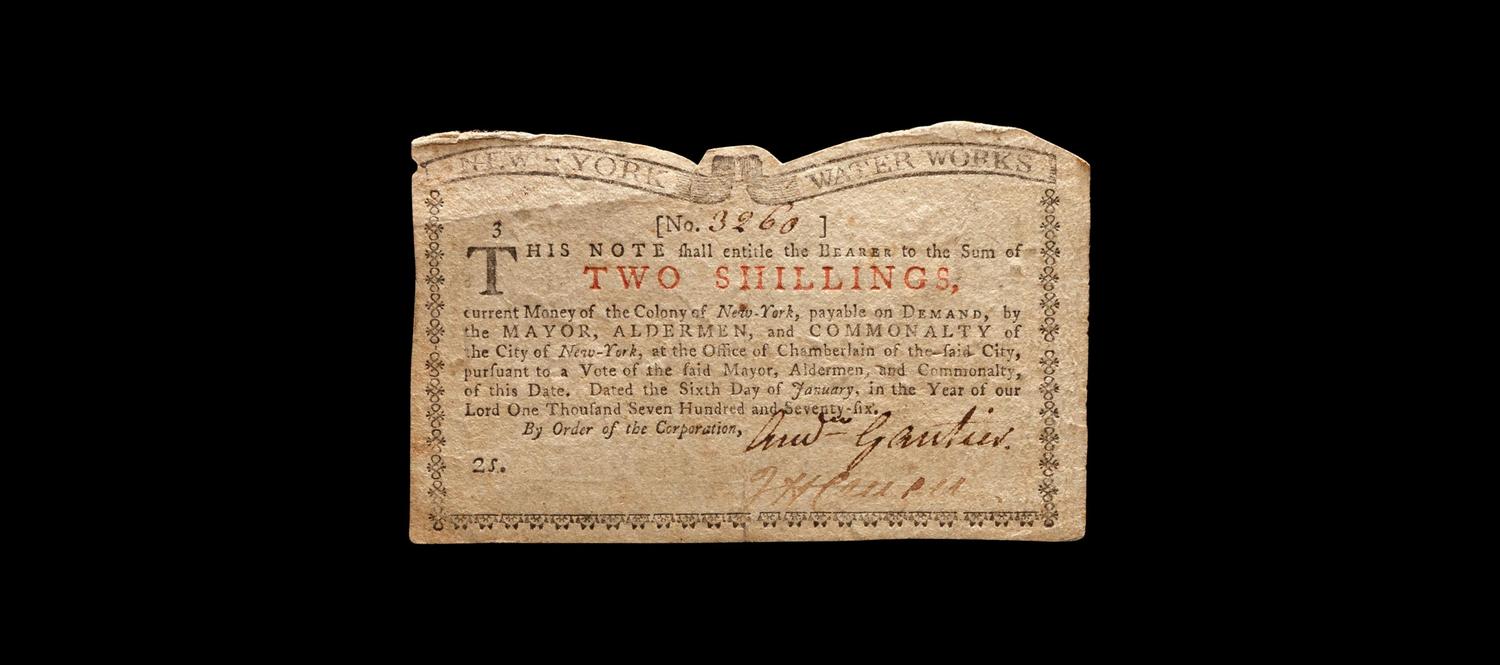 NEW-YORK WATER WORKS
3 [No. 3260 ]
THIS NOTE ſhall entitle the BEARER to the Sum of
TWO SHILLINGS,
current Money of the Colony of New-York, payable on DEMAND, by
the MAYOR, ALDERMEN, and COMMONALTY of
the City of New-York, at the Office of Chamberlain of the ſaid City,
purſuant to a Vote of the ſaid Mayor, Aldermen, and Commonalty,
of this Date. Dated the Sixth Day of January, in the Year of our
Lord One Thouſand Seven Hundred and Seventy-ſix.
By Order of the Corporation,
Andw Gautier.
2s.